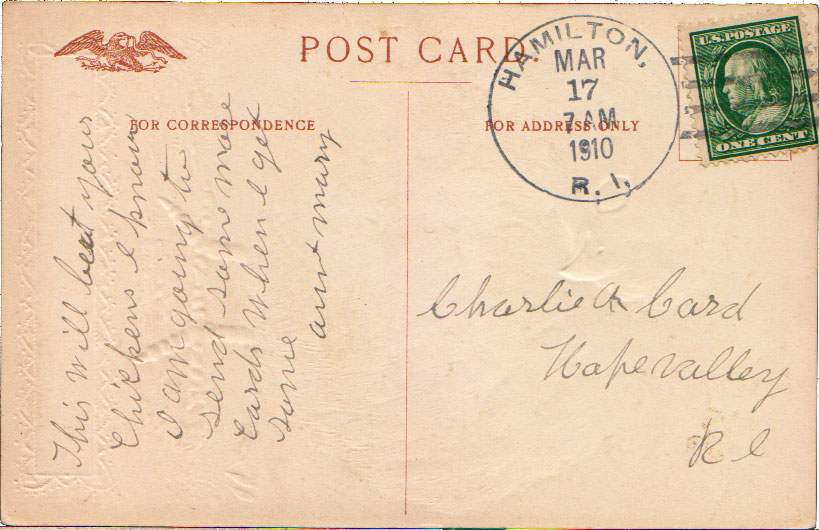 POST CARD.
HAMILTON,
MAR
17
7 AM
1910
R. I.
U.S. POSTAGE
ONE CENT
FOR CORRESPONDENCE
FOR ADDRESS ONLY
This will beat your
Chickens I know
I am going to
send some more
Cards when I get
some
aunt mary
Charlie A Card
Hopevalley
R I